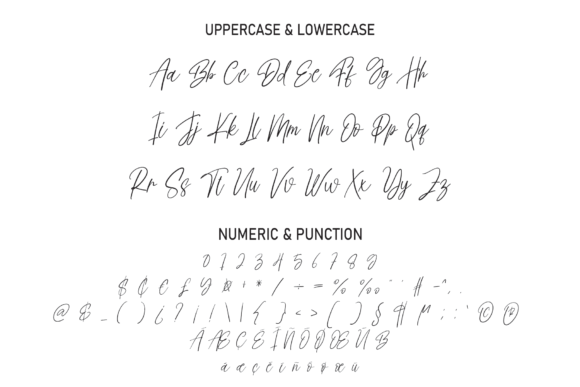 UPPERCASE & LOWERCASE
Aa Bb Cc Dd Ee Ff Gg Hh
Ii Jj Kk Ll Mm Nn Oo Pp Qq
Rr Ss Tt Uu Vv Ww Xx Yy Zz
NUMERIC & PUNCTION
0 1 2 3 4 5 6 7 8 9
$ ₵ € £ ¥ + * / ÷ = % ‰
@ & _ ( ) ¿ ? ¡ ! \ | { } < > [ ] § ¶ µ ; : © ®